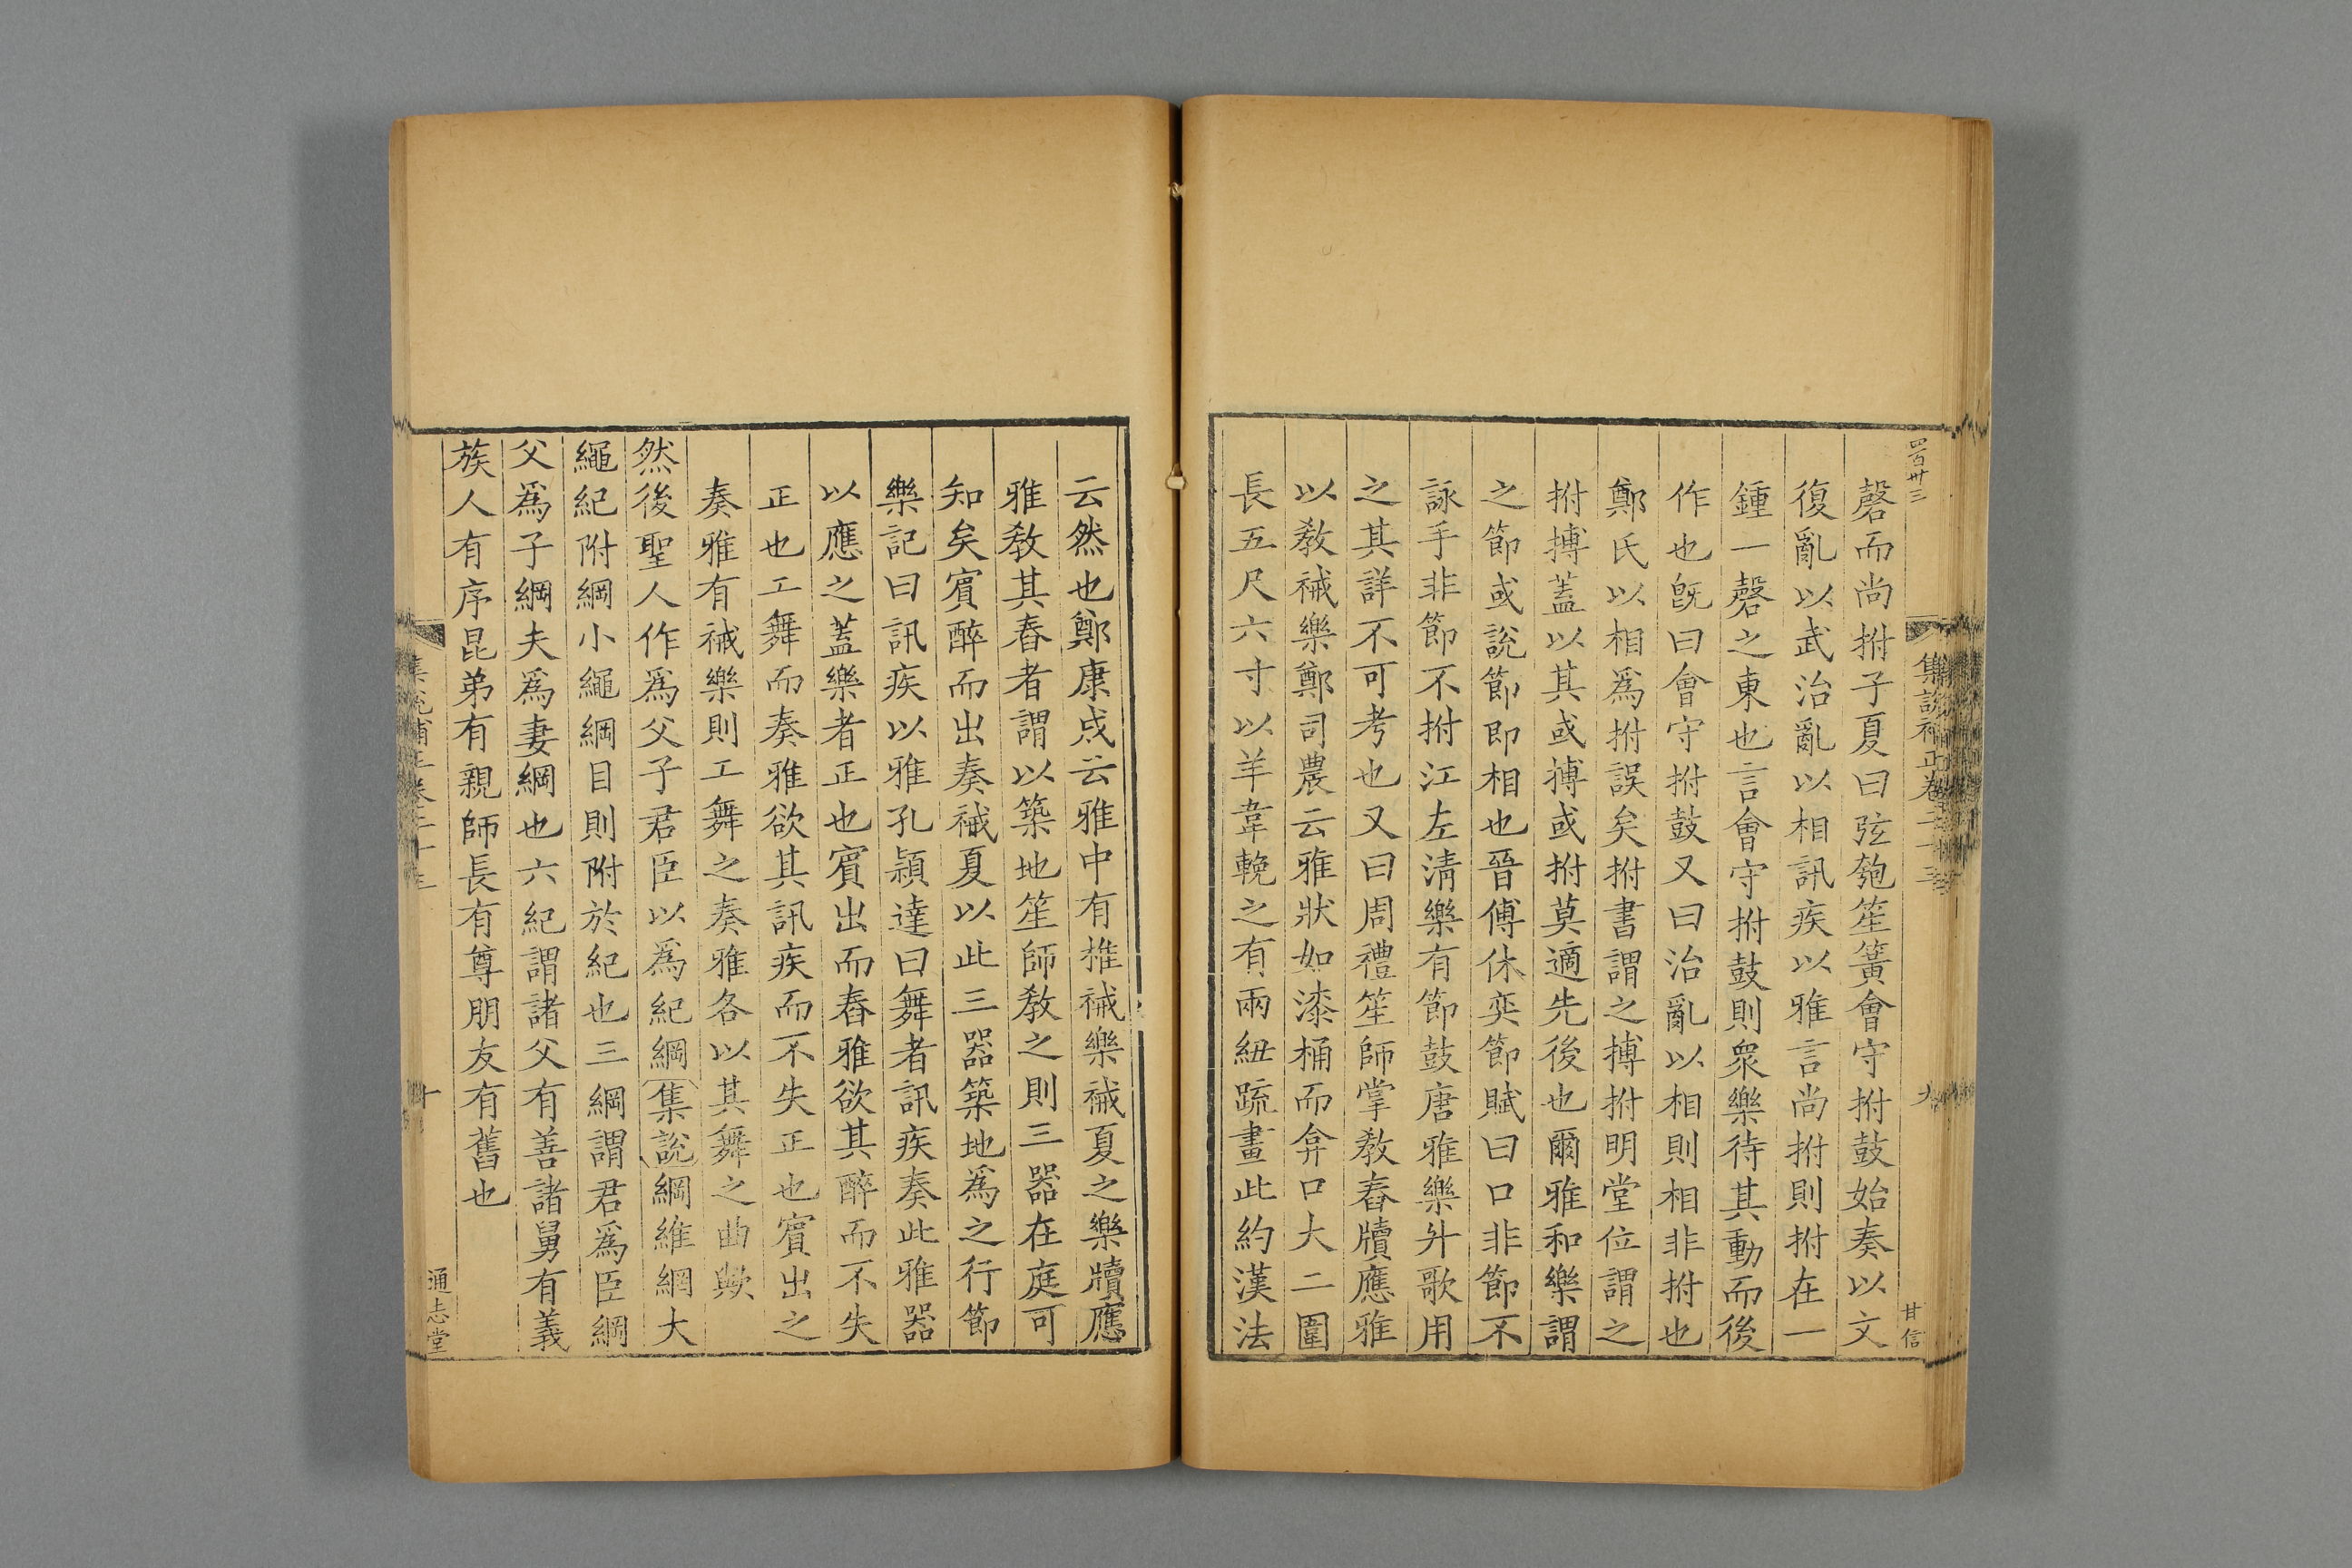 四百卅三
集説補正卷二十三
九
甘信
磬而尚拊子夏曰弦匏笙簧會守拊鼓始奏以文
復亂以武治亂以相訊疾以雅言尚拊則拊在一
鍾一磬之東也言會守拊鼓則衆樂待其動而後
作也旣曰會守拊鼓又曰治亂以相則相非拊也
鄭氏以相爲拊誤矣拊書謂之搏拊明堂位謂之
拊搏蓋以其或搏或拊莫適先後也爾雅和樂謂
之節或説節即相也晉傅休奕節賦曰口非節不
詠手非節不拊江左淸樂有節鼓唐雅樂升歌用
之其詳不可考也又曰周禮笙師掌教舂牘應雅
以教祴樂鄭司農云雅狀如漆桶而弇口大二圍
長五尺六寸以羊韋鞔之有兩紐疏畫此約漢法
云然也鄭康成云雅中有椎祴樂祴夏之樂牘應
雅教其舂者謂以築地笙師教之則三器在庭可
知矣賓醉而出奏祴夏以此三器築地爲之行節
樂記曰訊疾以雅孔穎達曰舞者訊疾奏此雅器
以應之蓋樂者正也賓出而舂雅欲其醉而不失
正也工舞而奏雅欲其訊疾而不失正也賓出之
奏雅有祴樂則工舞之奏雅各以其舞之曲歟
然後聖人作爲父子君臣以爲紀綱集説綱維網大
繩紀附綱小繩綱目則附於紀也三綱謂君爲臣綱
父爲子綱夫爲妻綱也六紀謂諸父有善諸舅有義
族人有序昆弟有親師長有尊朋友有舊也
集説補正卷二十三
十
通志堂